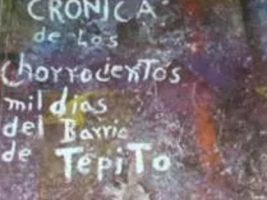 CRÓNICA
de los
chorrocientos
mil días
del Barrio
de TEPITO